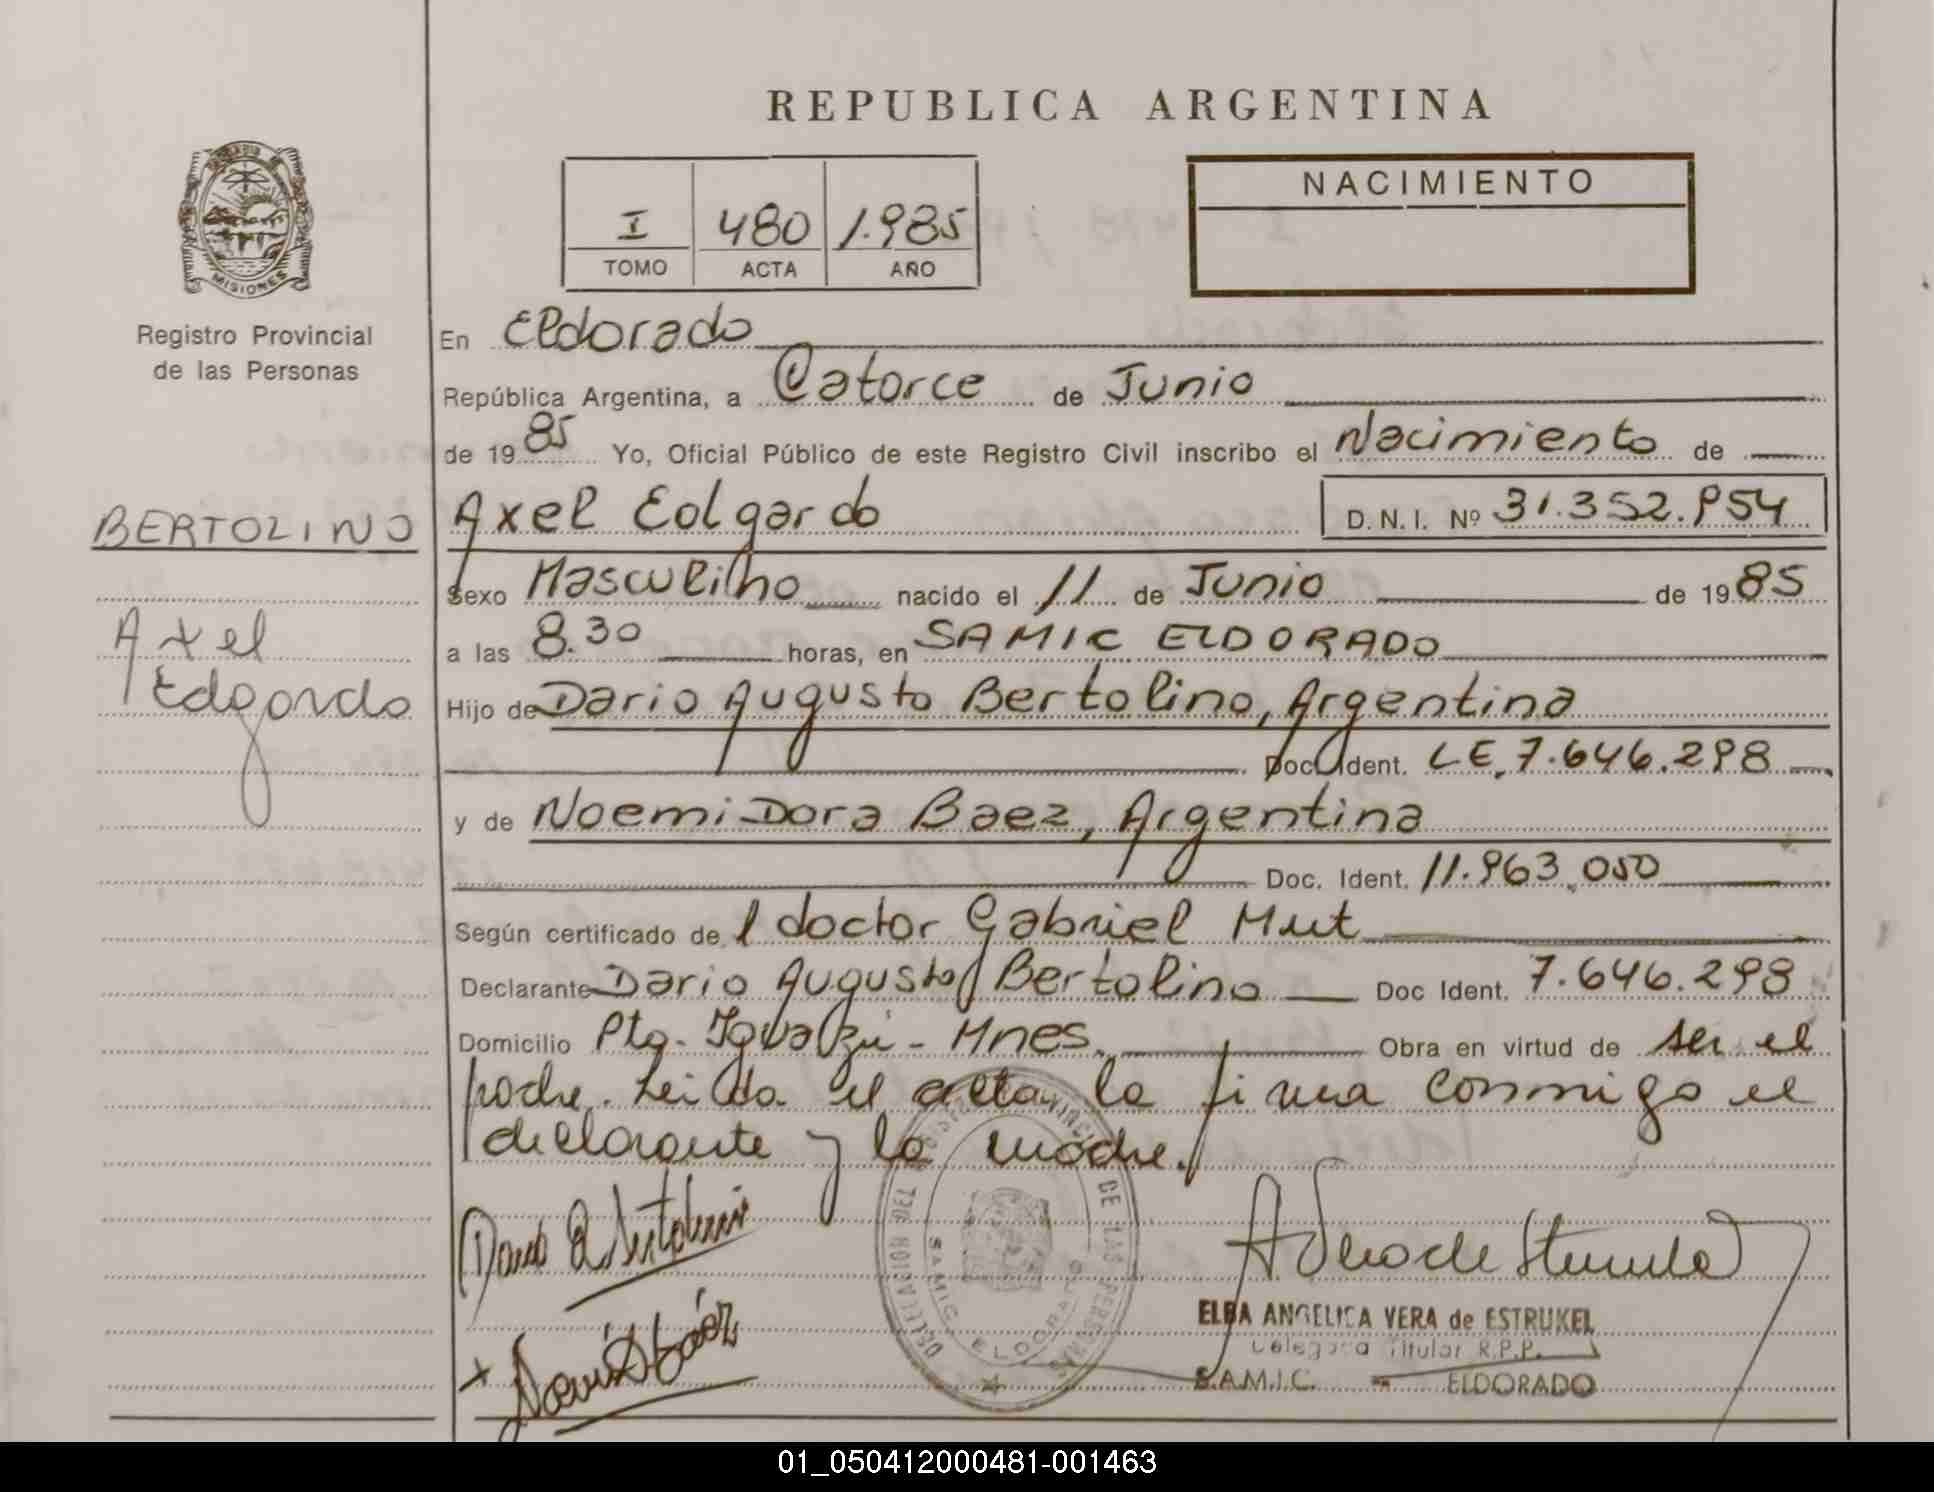 REPUBLICA ARGENTINA
MISIONES
Registro Provincial
de las Personas
I 480 1.985
TOMO ACTA AÑO
NACIMIENTO
En Eldorado
República Argentina, a Catorce de Junio
de 1985 Yo, Oficial Público de este Registro Civil inscribo el Nacimiento de
BERTOLINO
Axel
Edgardo
Axel Edgardo D.N.I. Nº 31.352.954
Sexo Masculino nacido el 11 de Junio de 1985
a las 8.30 horas, en SAMIC ELDORADO
Hijo de Dario Augusto Bertolino, Argentina
Doc. Ident. LE. 7.646.298
y de Noemi Dora Baez, Argentina
Doc. Ident. 11.963.050
Según certificado de l doctor Gabriel Mut
Declarante Dario Augusto Bertolino Doc Ident. 7.646.298
Domicilio Pto. Iguazú - Mnes. Obra en virtud de ser el
padre. Leida el acta, la firma conmigo el
declarante y la madre.
REGISTRO PROVINCIAL DE LAS PERSONAS
SAMIC. ELDORADO
ELBA ANGELICA VERA de ESTRUKEL
Delegada Titular R.P.P.
S.A.M.I.C. - ELDORADO
01_050412000481-001463